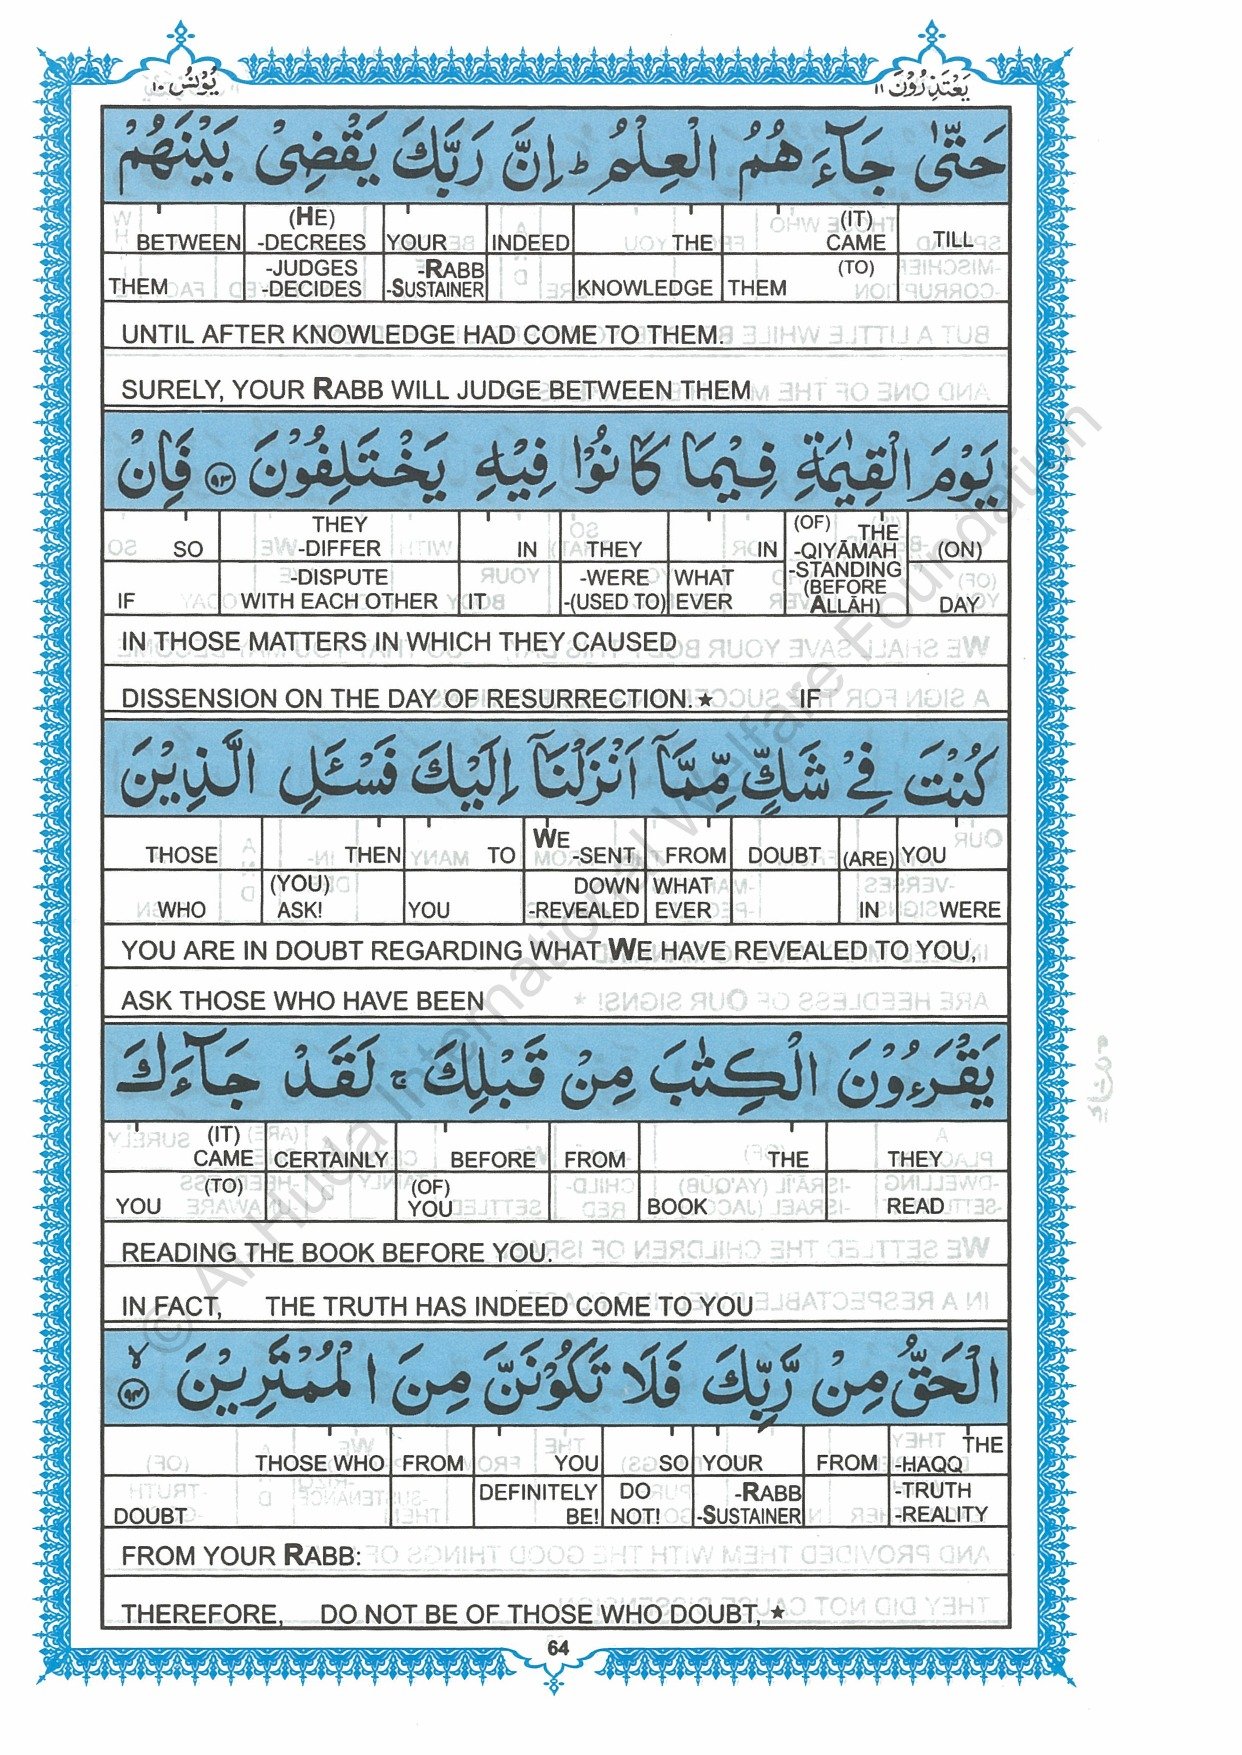 يُوْنُس ١٠
يَعْتَذِرُوْنَ ١١
حَتّٰى جَآءَ هُمُ الْعِلْمُ ؕ اِنَّ رَبَّكَ يَقْضِىْ بَيْنَهُمْ
BETWEEN (HE) -DECREES YOUR INDEED THE (IT) CAME TILL
THEM -JUDGES -DECIDES -RABB -SUSTAINER KNOWLEDGE THEM (TO)
UNTIL AFTER KNOWLEDGE HAD COME TO THEM.
SURELY, YOUR RABB WILL JUDGE BETWEEN THEM
يَوْمَ الْقِيٰمَةِ فِيْمَا كَانُوْا فِيْهِ يَخْتَلِفُوْنَ ۹۳ فَاِنْ
SO THEY -DIFFER IN THEY IN (OF) THE -QIYĀMAH (ON)
IF -DISPUTE WITH EACH OTHER IT -WERE -(USED TO) WHAT EVER -STANDING (BEFORE ALLĀH) DAY
IN THOSE MATTERS IN WHICH THEY CAUSED
DISSENSION ON THE DAY OF RESURRECTION.★ IF
كُنْتَ فِىْ شَكٍّ مِّمَّآ اَنْزَلْنَآ اِلَيْكَ فَسْـَٔلِ الَّذِيْنَ
THOSE THEN TO WE -SENT FROM DOUBT (ARE) YOU
WHO (YOU) ASK! YOU DOWN -REVEALED WHAT EVER IN WERE
YOU ARE IN DOUBT REGARDING WHAT WE HAVE REVEALED TO YOU,
ASK THOSE WHO HAVE BEEN
يَقْرَءُوْنَ الْكِتٰبَ مِنْ قَبْلِكَ ۚ لَقَدْ جَآءَكَ
(IT) CAME CERTAINLY BEFORE FROM THE THEY
YOU (TO) (OF) YOU BOOK READ
READING THE BOOK BEFORE YOU.
IN FACT, THE TRUTH HAS INDEED COME TO YOU
الْحَقُّ مِنْ رَّبِّكَ فَلَا تَكُوْنَنَّ مِنَ الْمُمْتَرِيْنَ ۙ ۹۴
THOSE WHO FROM YOU SO YOUR FROM THE -HAQQ
DOUBT DEFINITELY BE! DO NOT! -RABB -SUSTAINER -TRUTH -REALITY
FROM YOUR RABB:
THEREFORE, DO NOT BE OF THOSE WHO DOUBT, ★
64
© Al-Huda International Welfare Foundation